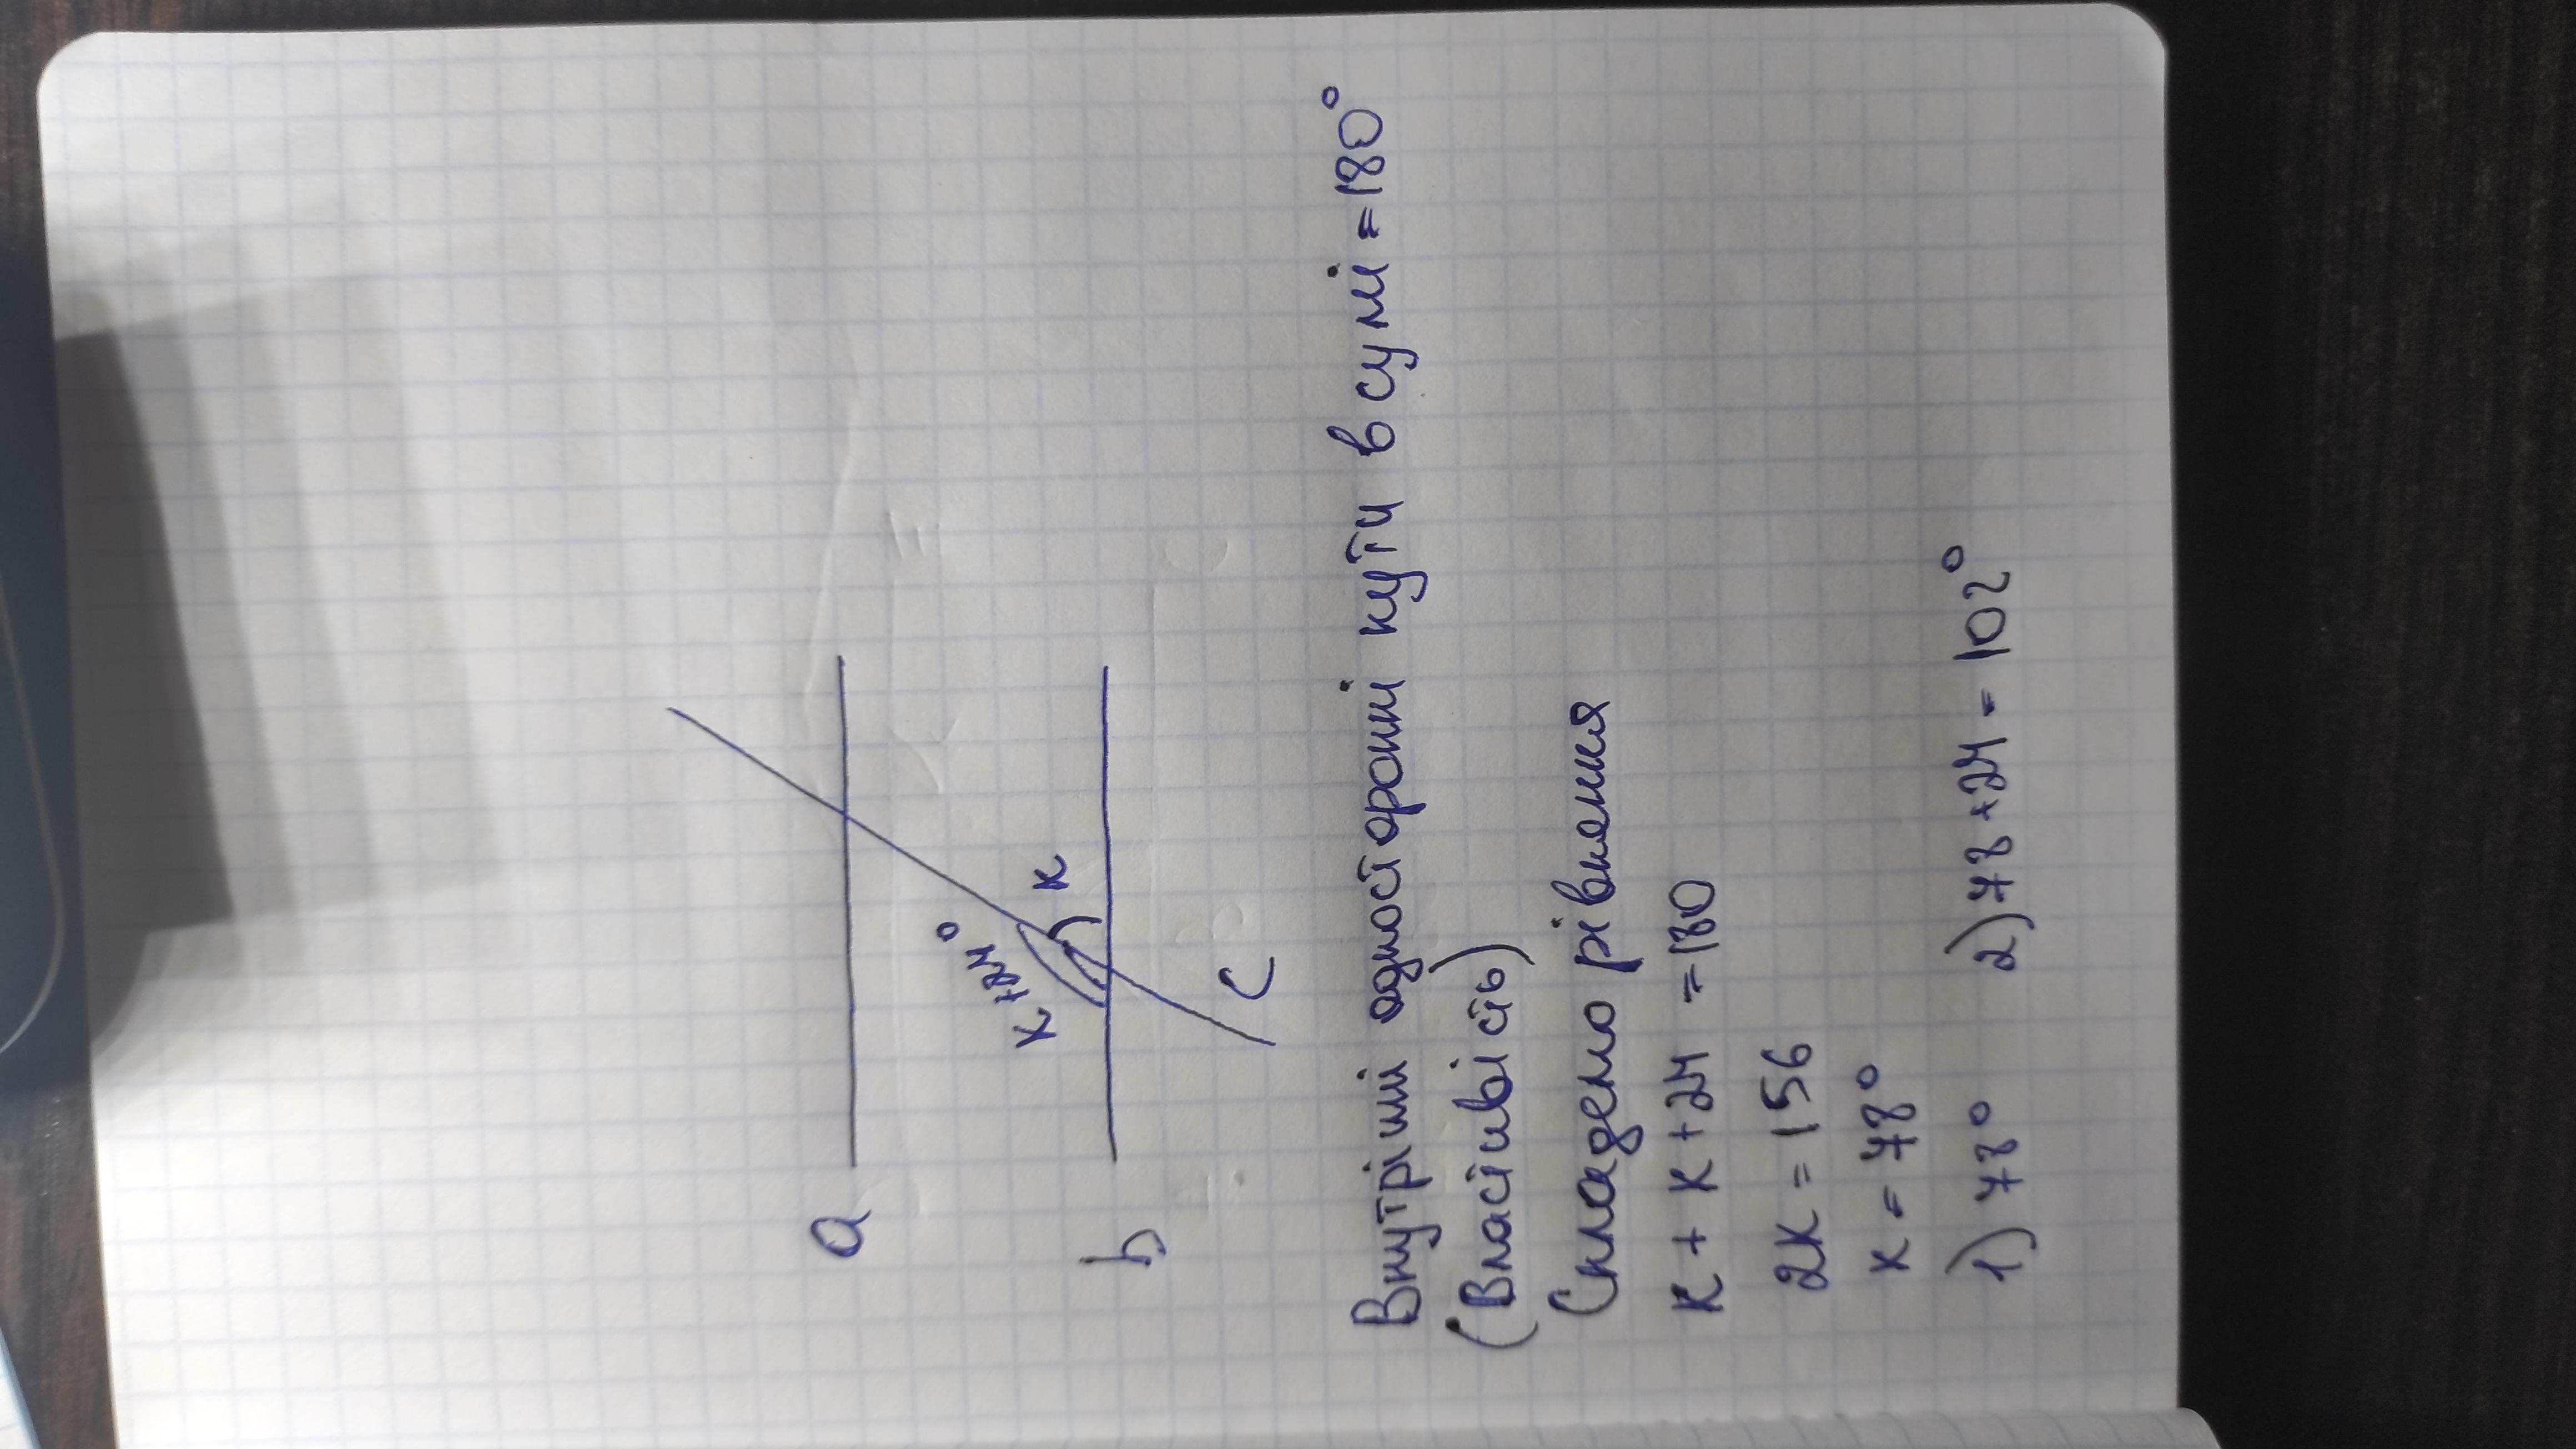 a
b
c
x+24°
x
Внутрішні односторонні кути в сумі =180°
(Властивість)
Складемо рівняння
x + x +24 =180
2x =156
x = 78°
1) 78° 2) 78+24 = 102°